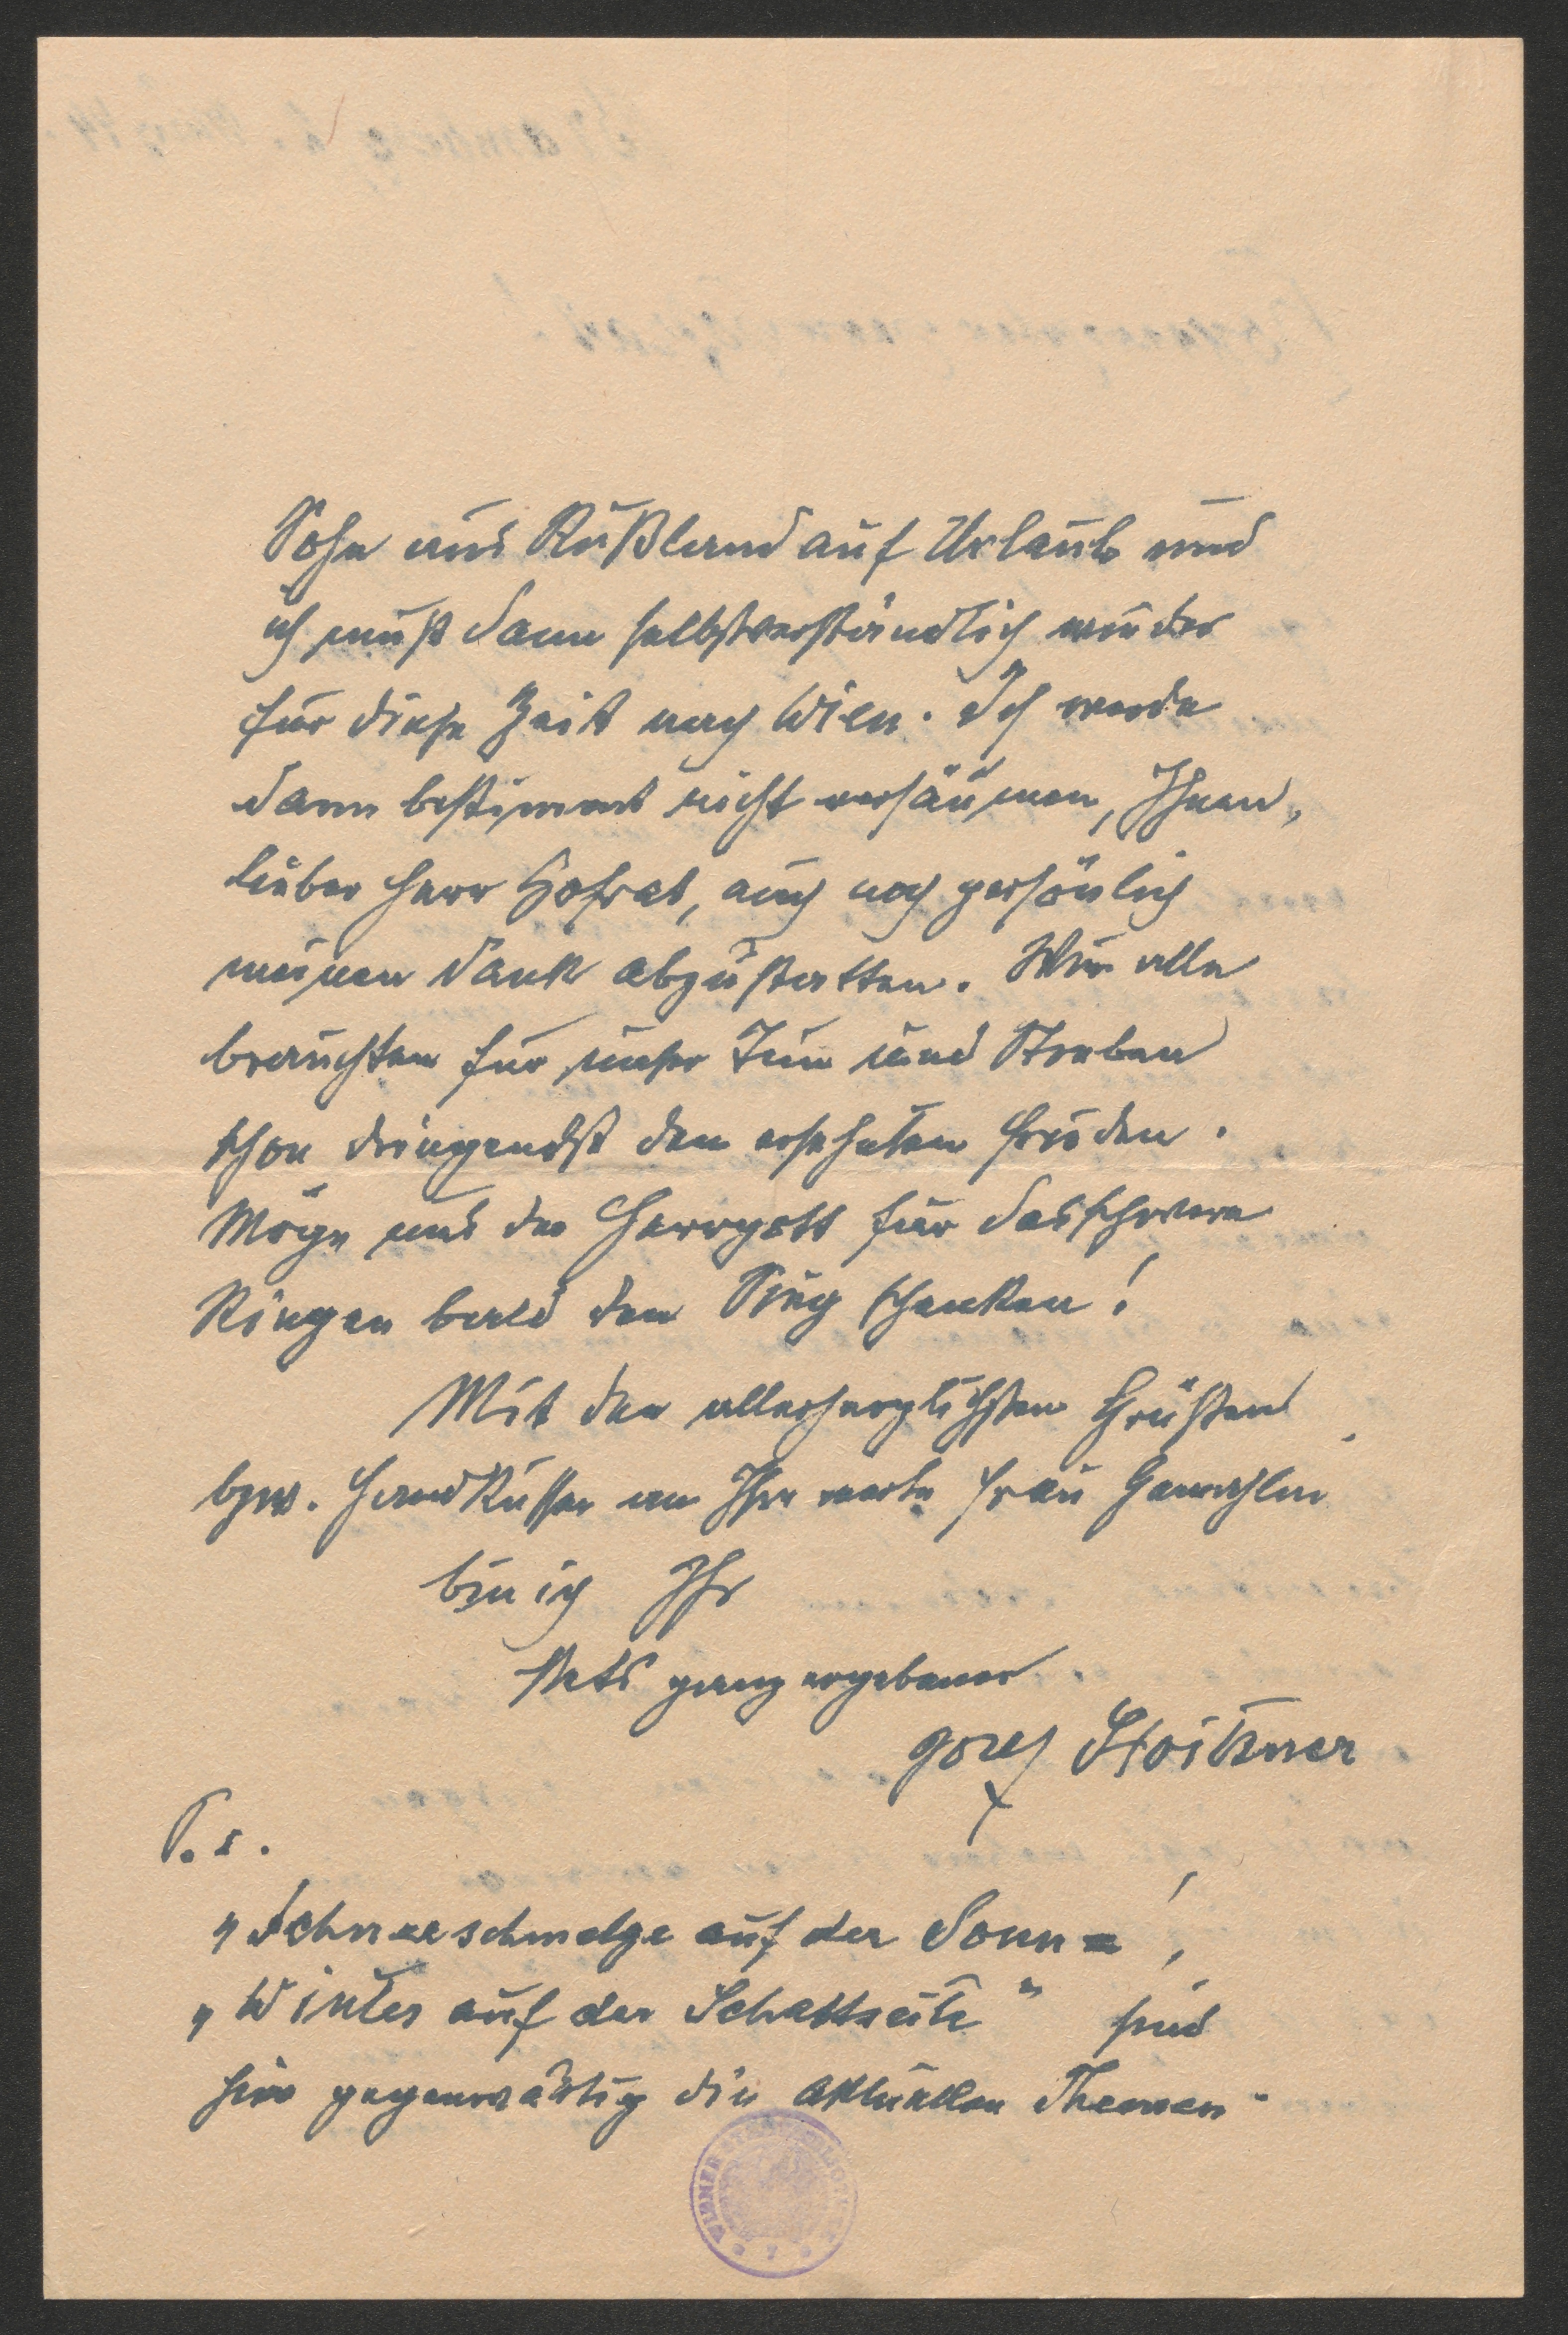 Sohn aus Rußland auf Urlaub und
ich muß dann selbstverständlich wieder
für diese Zeit nach Wien. Ich werde
dann bestimmt nicht versäumen, Ihnen,
lieber Herr Hofrat, auch noch persönlich
meinen Dank abzustatten. Wir alle
brauchten für unser Tun und Streben
schon dringendst den ersehnten Frieden.
Möge uns der Herrgott für das schwere
Ringen bald den Sieg schenken!
Mit den allerherzlichsten Grüßen
bzw. Handküssen an Ihre werte Frau Gemahlin
bin ich Ihr
stets ganz ergebener
Josef Stoitzner
P.s.
„Schneeschmelze auf der Sonn=",
„Winter auf der Schattseite" sind
hier gegenwärtig die aktuellen Themen.
WIENER